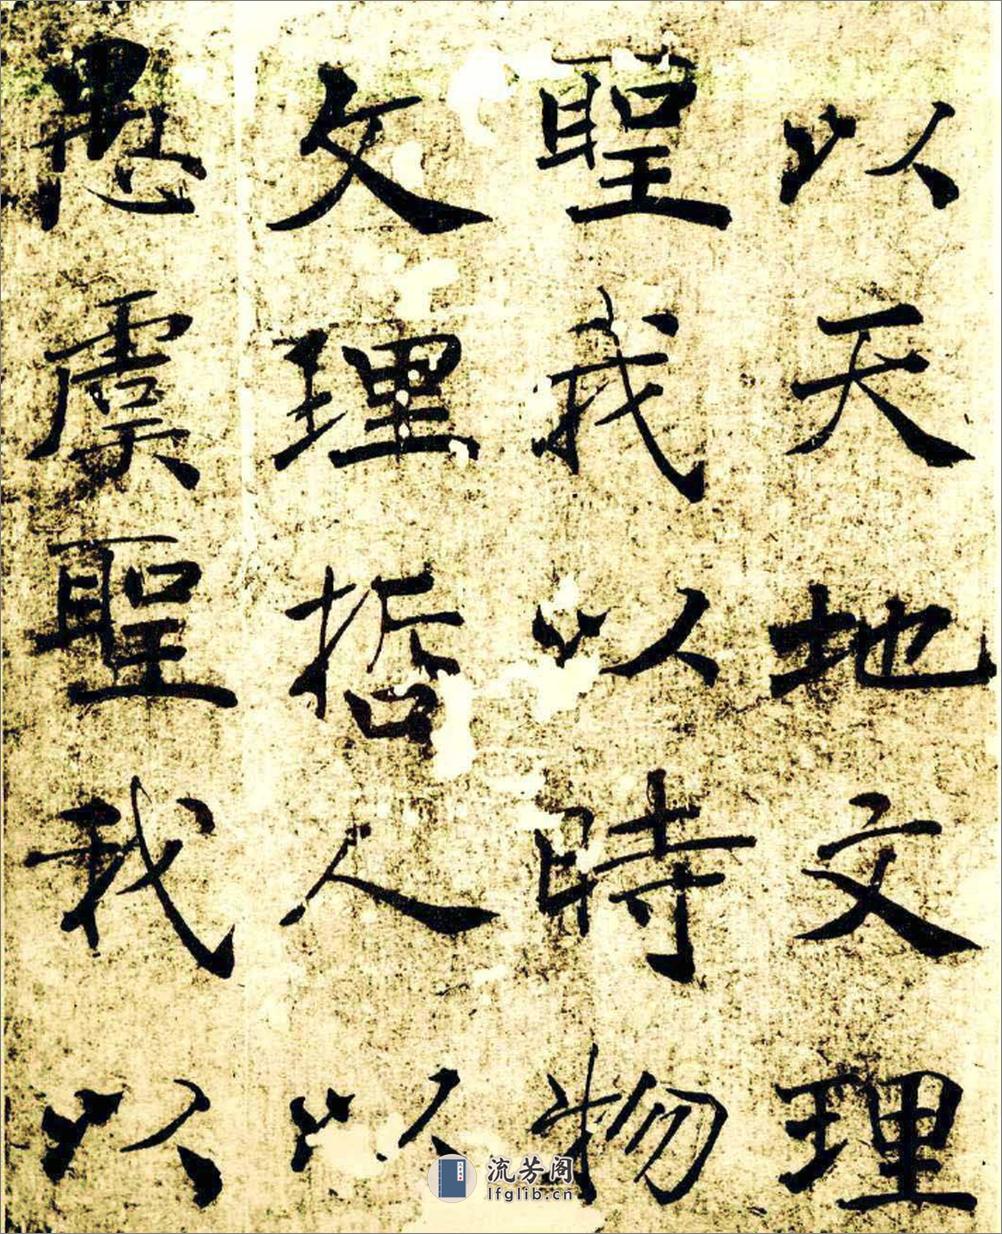 以天地文理
聖我以時物
文理哲人以
愚虞聖我以
流芳阁
lfglib.cn